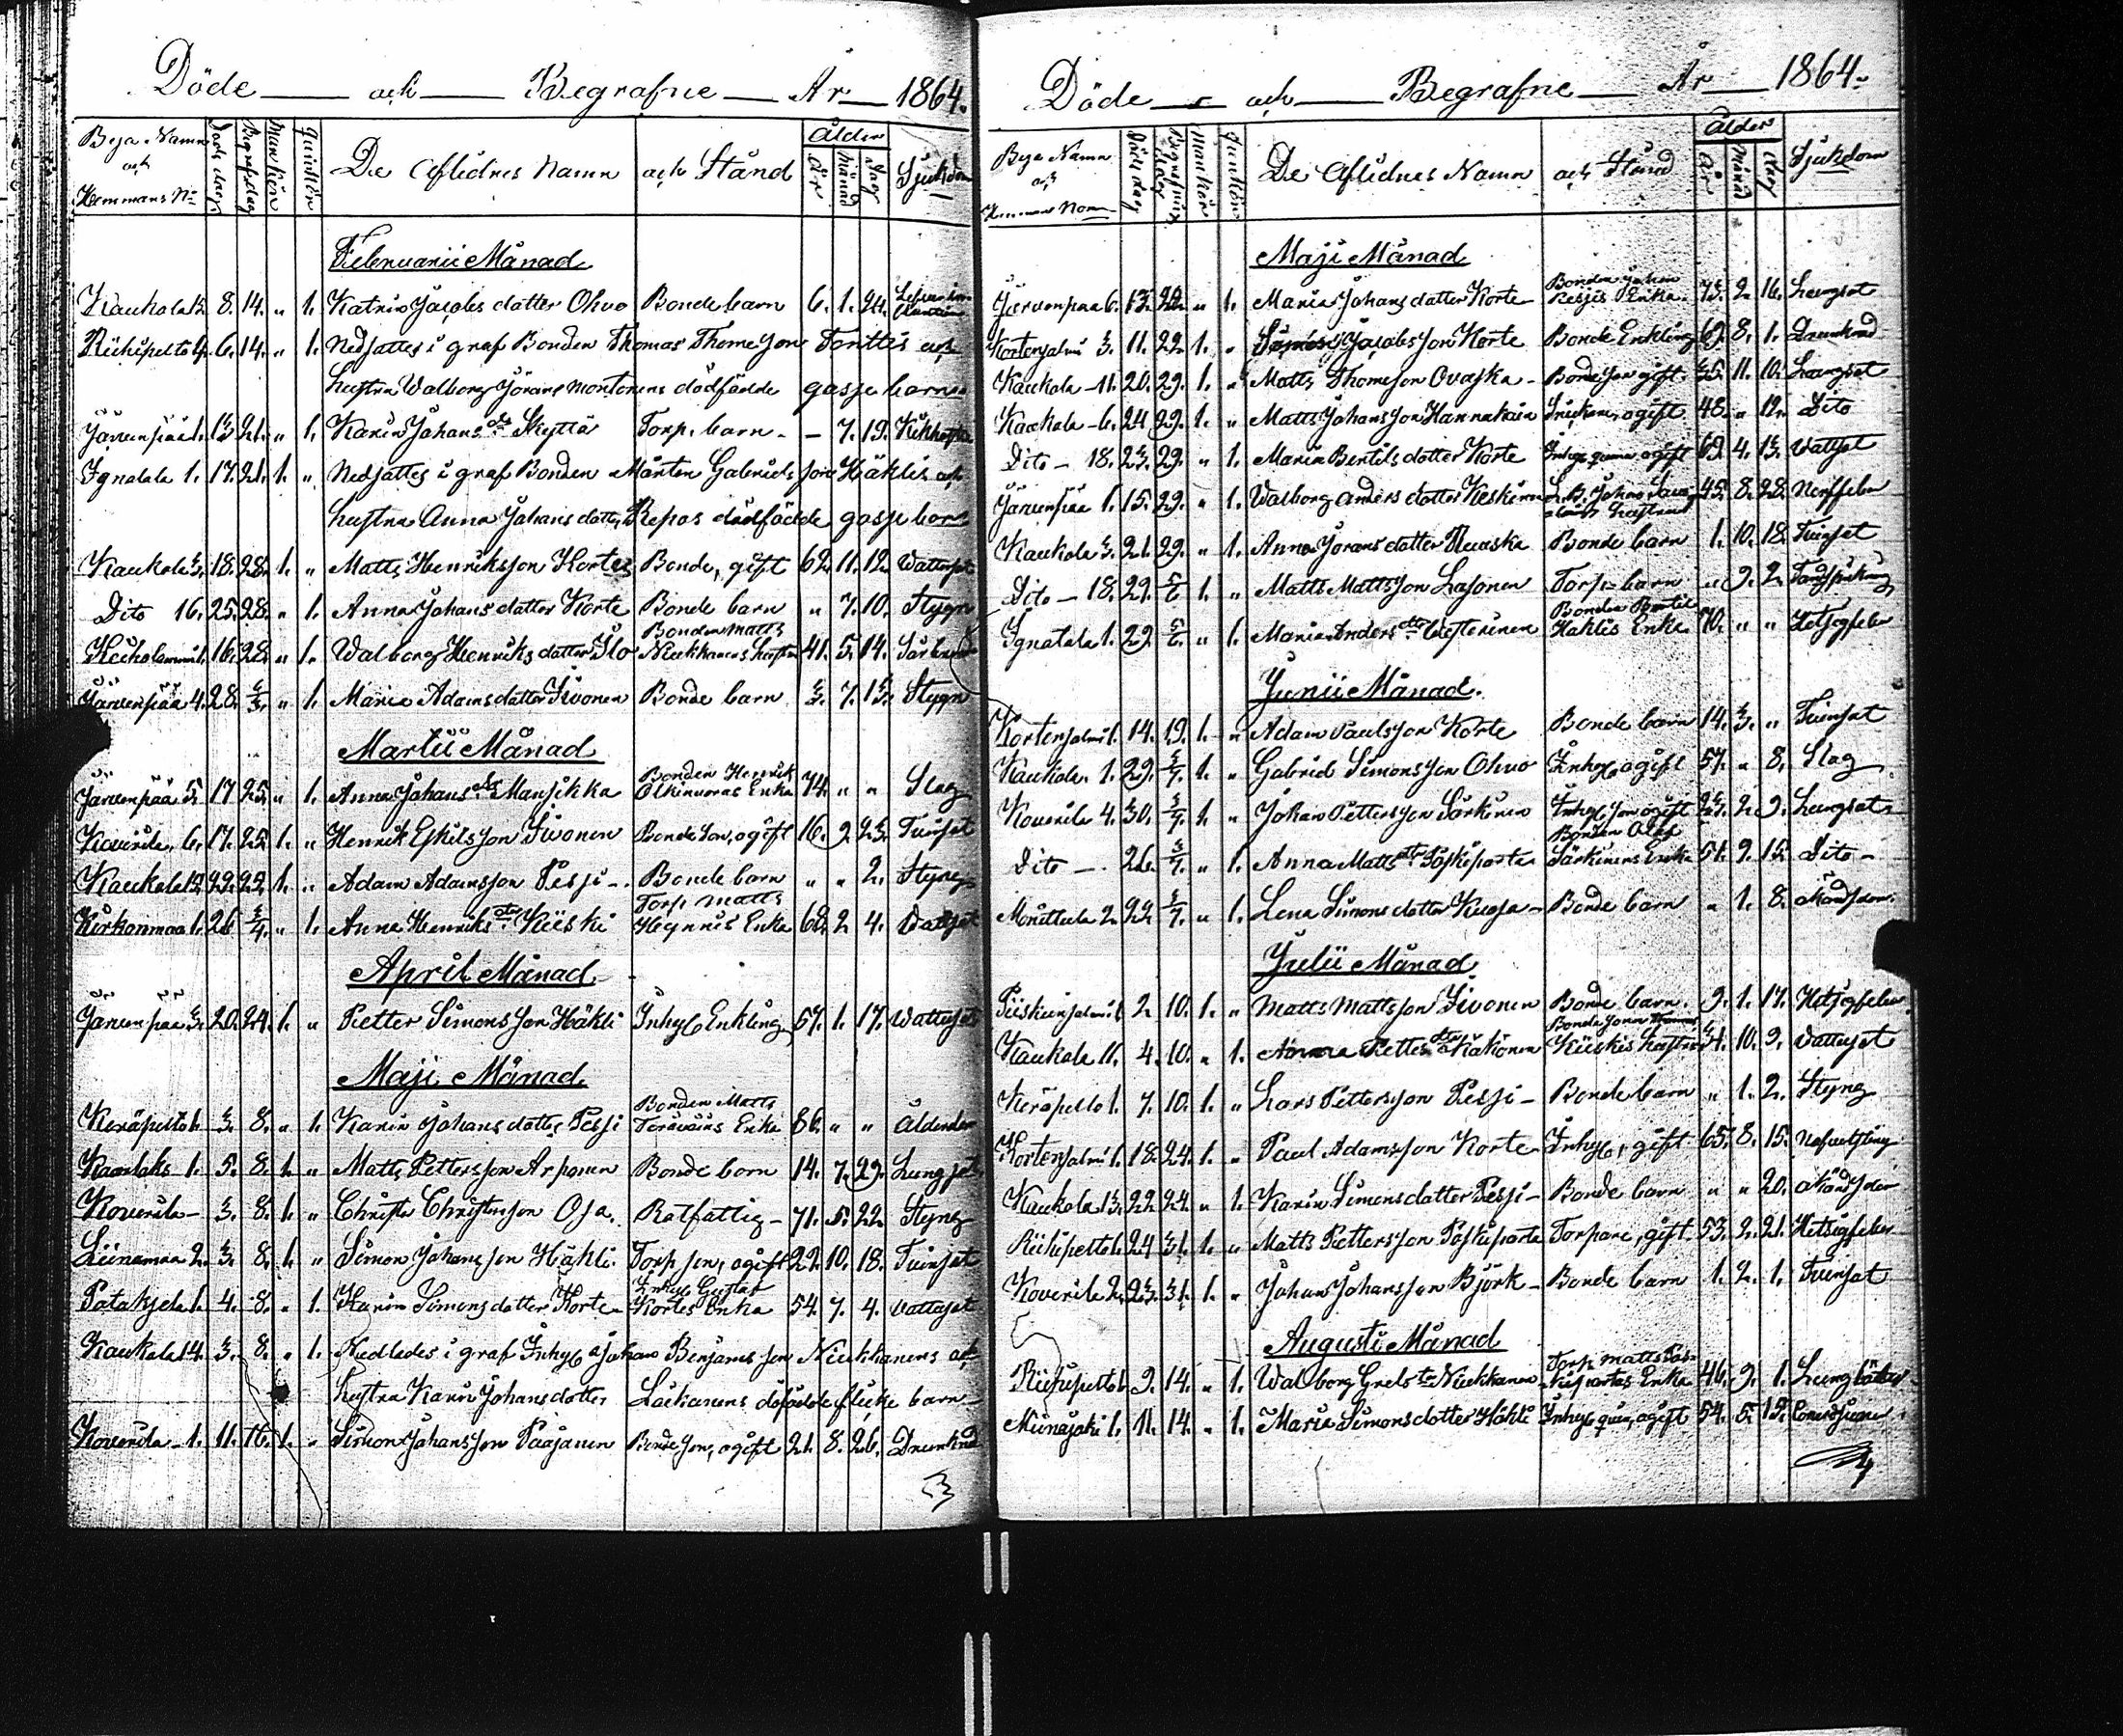 Döde och Begrafne År 1864.
Bya Namn och Hemmans No Döds dag Begrafn.dag Mankön Qvinkön De Aflidnes Namn och Stånd Ålder År Månad Dag Sjukdom
Februarii Månad
Kaukola 12. 8. 14. " 1. Katrin Jacobs dotter Ohvo Bonde barn 6. 1. 24.
Riihipelto 4. 6. 14. " 1. Nedsattes i graf Bonden Thomas Thomeson Tanttis och
hustru Walborg Jörans Montonens dödfödde gosse barn
Järvenpää 1. 13 21. " 1. Karin Johans dr Skyttä Torp. barn - 7. 19. Kikhosta
Ignatala 1. 17. 21. 1. " Nedsattes i graf Bonden Mårten Gabriels son Häklis och
hustru Anna Johans dotter Repos dödfödde gosse barn
Kaukola 3. 18. 28. 1. " Matts Henriksson Kortes Bonde, gift 62. 11. 12. Wattusot
Dito 16. 25. 28. " 1. Anna Johans dotter Korte Bonde barn " 7. 10. Stygn
16. 28. " 1. Walborg Henriks dotter Ilo Bonden Matts Niukkanens hustru 41. 5. 14.
Järvenpää 4. 28. 6/3. " 1. Maria Adams dotter Sivonen Bonde barn 3. 7. 13. Stygn
Martii Månad
Järvenpää 5. 17 25. " 1. Anna Johans dr Mansikka Bonden Henrik Olkinuoras Enka 74. " " Slag
Koverila. 6. 17. 25. 1. " Henrik Eskilsson Sivonen Bonde son, ogift 16. 9. 23. Tvinsot
Kaukola 12. 22. 25. 1. " Adam Adamsson Pessi Bonde barn " " 2. Styng
Kirkonmaa 1. 26 3/4. " 1. Anna Henriks dr Kiiski Torp Matts Hynnis Enka 68. 2 4. Wattsot
April Månad
Järvenpää 3. 20. 24. 1. " Petter Simonsson Häkli Inhys Enkling 57. 1. 17. Wattusot
Maji Månad
Keräpelto 1. 3. 8. " 1. Karin Johans dotter Pessi Bonden Matts Teräväins Enka 86. " " Ålderdom
Kaarlaks 1. 5. 8. 1. " Matts Pettersson Arponen Bonde barn 14. 7. 29. Lungsot
Koverila - 3. 8. 1. " Christer Christersson Oja. Rotfattig - 71. 5. 22 Styng
Liinamaa 2. 3. 8. 1. " Simon Johansson Häkli Torp son, ogift 22. 10. 18. Tvinsot
Potakselä 1. 4. 8. " 1. Karin Simons dotter Korte Inhys Gustaf Kortes Enka 54. 7. 4. Wattusot
Kaukola 14. 3. 8. " 1. Nedlades i graf Inhys Johan Benjamsson Niukkanens och
hustru Karin Johans dotter Laikanens dödfödde flicke barn
Koverila 1. 11. 16. 1. " Simon Johansson Paajanen Bonde son, ogift 21. 8. 26. Drunknad
3
Döde och Begrafne År 1864.
Bya Namn och Hemmans Nom Döds dag Begrafnings dag Mankön Qvinkön De Aflidnes Namn och Stånd Ålder År Månad Dag Sjukdom
Maji Månad
Järvenpää 6. 13. 22. " 1. Maria Johans dotter Korte Bonden Johan Pessis Enka 73. 2. 16. Lungsot
Kortensalmi 3. 11. 22. 1. " Jacobsson Korte Bonde Enkling 69. 8. 1. Drunknad
Kaukola 11. 20. 29. 1. " Matts Thomeson Ovaska Bonde son gift. 35. 11. 10. Lungsot
Kaukola 6. 24 29. 1. " Matts Johansson Hannukain ogift 48. " 12. Dito
Dito - 18. 27. 29. " 1. Maria Bertils dotter Korte Inhys quinna ogift 69. 4. 13. Wattsot
Järvenpää 1. 15. 29. " 1. Walborg Anders dotter Keskinen 45. 8. 28. Nerffeber
Kaukola 3. 21. 29. " 1. Anna Jörans dotter Ovaska Bonde barn 1. 10. 18. Tvinsot
Dito - 18. 29. 5/6 1. " Matts Mattsson Lasonen Torp. barn " 9. 2.
Ignatala 1. 29. 5/6. " 1. Maria Anders dr Westerinen Bonden Bertil Häklis Enka 70. " " Hetsigfeber
Junii Månad.
Kortensalmi 1. 14. 19. 1. " Adam Paulsson Korte Bonde barn 14. 3. " Tvinsot
Kaukola 1. 29. 3/7. 1. " Gabriel Simonsson Ohvo Inhys, ogift 57. " 8. Slag
Koverila 4. 30. 3/7. 1. " Johan Pettersson Särkinen Inhys son ogift 27. 2. 9. Lungsot
Dito - 26. 3/7. " 1. Anna Matts dr Pöskiparta Bonden Olof Särkinens Enka 51. 9. 15. Dito -
2. 22 3/7. " 1. Lena Simons dotter Kuosa Bonde barn " 1. 8.
Julii Månad
Piiskunsalmi 1. 2. 10. 1. " Matts Mattsson Sivonen Bonde barn. 9. 1. 17. Hetsigfeber
Kaukola 11. 4. 10. " 1. Anna Petters dr Käkönen Kiiskis hustru 31. 10. 9. Wattusot
Keräpelto 1. 7. 10. 1. " Lars Pettersson Pessi Bonde barn " 1. 2. Styng
Kortensalmi 1. 18. 24. 1. " Paul Adamsson Korte Inhys, gift 65. 8. 15.
Kaukola 13. 22. 24. " 1. Karin Simons dotter Pessi Bonde barn " " 20.
Riihipelto 1. 24 31. 1. " Matts Pettersson Pöskiparta Torpare, gift. 53. 2. 21. Hetsigfeber
Koverila 2. 23. 31. 1. " Johan Johansson Björk Bonde barn 1. 2. 1. Tvinsot
Augusti Månad
Riihipelto 1. 9. 14. " 1. Walborg Grels dr Niukkanen Torp Matts Pöskipartas Enka 46. 9. 1.
Miinajoki 1. 11. 14. " 1. Maria Simons dotter Häkli Inhys quin, ogift 54. 5. 19.